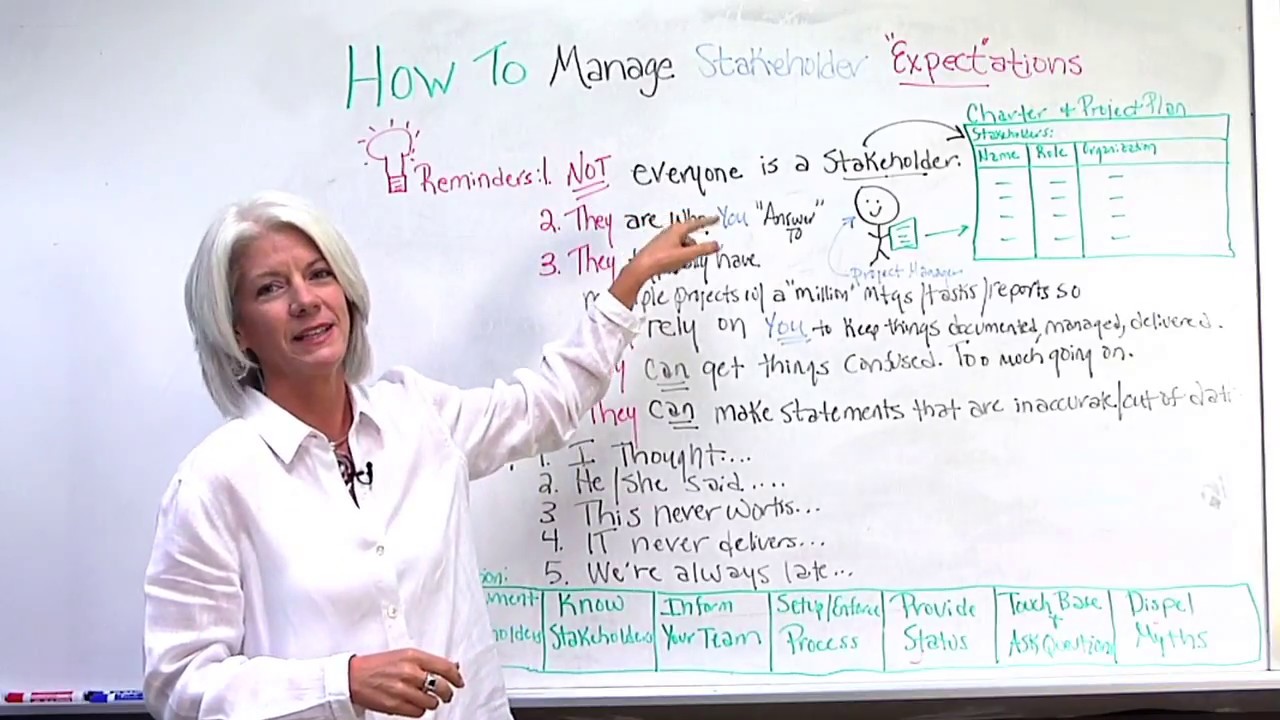 How To Manage Stakeholder "Expectations
Charter + Project Plan
Stakeholders:
Name Role Organization
Reminders: 1. NOT everyone is a Stakeholder.
2. They are Who You "Answer"
TO
3. They have
Project Manager
projects w/ a "million" mtgs/tasks/reports so
rely on You to keep things documented, managed, delivered.
can get things confused. Too much going on.
They can make statements that are inaccurate/out of
1. I Thought...
2. He/She said....
3 This never works...
4. IT never delivers...
5. We're always late...
Know Stakeholders
Inform Your Team
Setup/Enforce Process
Provide Status
Touch Base + Ask Question
Dispel Myths